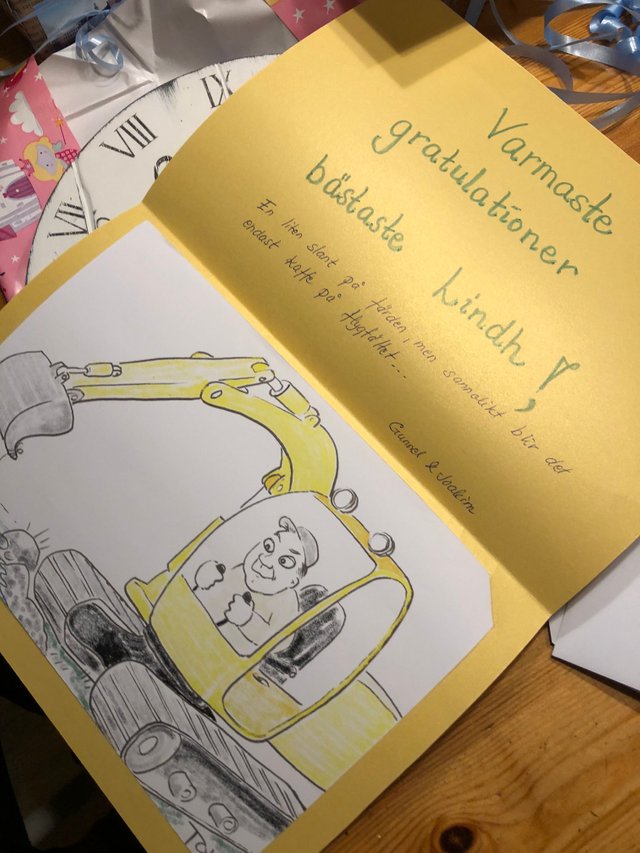 Varmaste
gratulationer
bästaste Lindh!
En liten slant på färden, men sannolikt blir det
endast kaffe på flygfältet...
Gunnel & Joakim
VII
VIII
IX